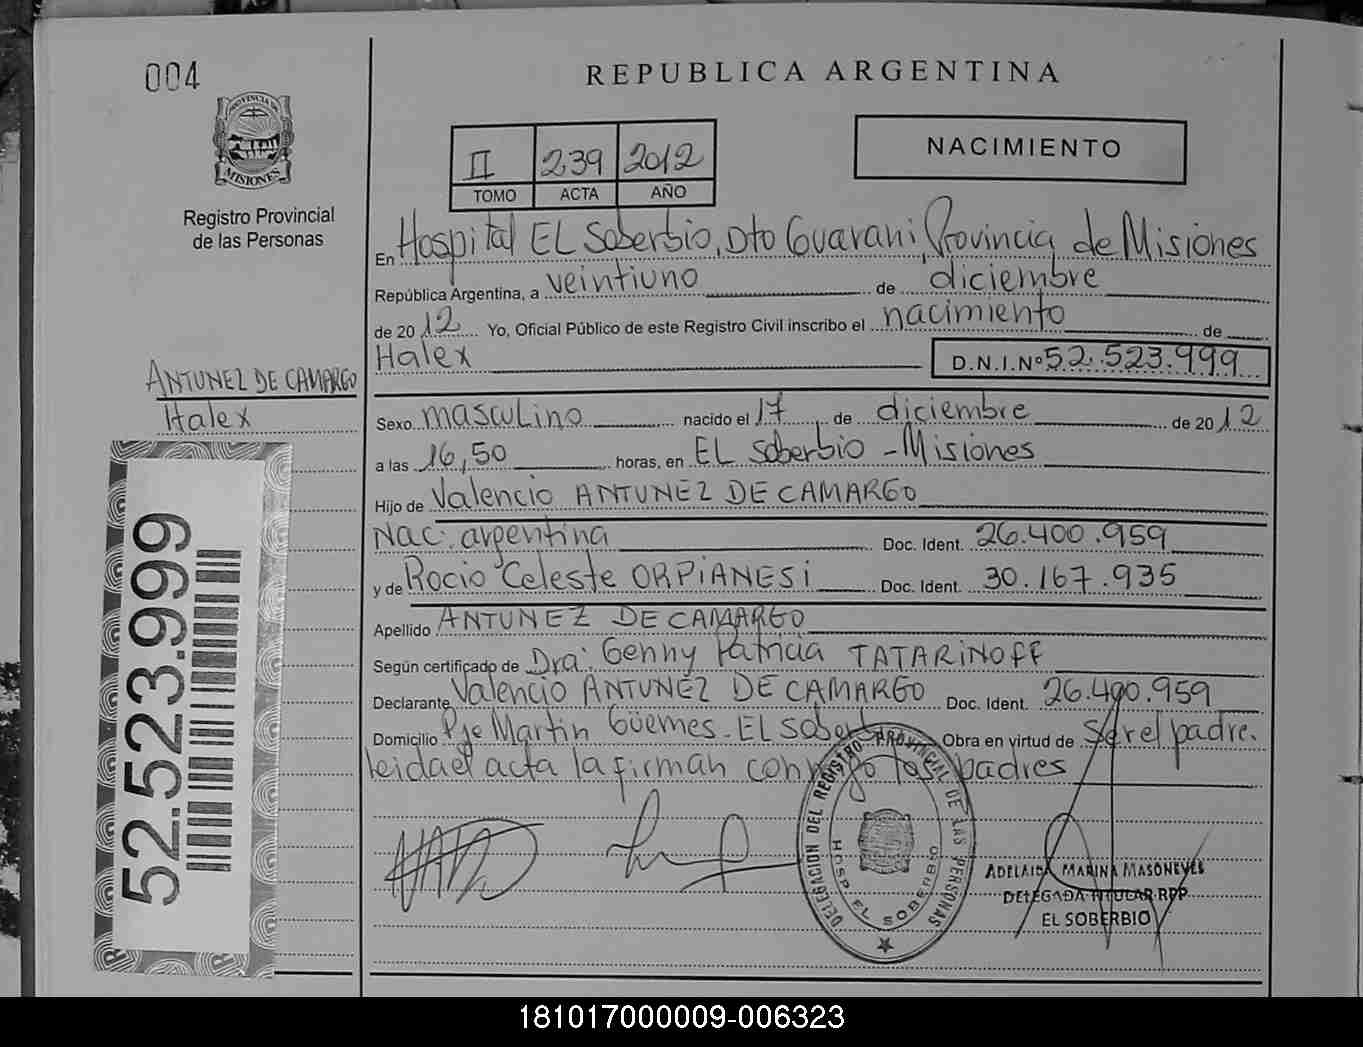 004
REPUBLICA ARGENTINA
PROVINCIA DE
MISIONES
Registro Provincial
de las Personas
II 239 2012
TOMO ACTA AÑO
NACIMIENTO
En Hospital EL Soberbio, Dto Guarani, Provincia de Misiones
República Argentina, a veintiuno de diciembre
de 2012 Yo, Oficial Público de este Registro Civil inscribo el nacimiento de
Halex D.N.I.Nº 52.523.999
ANTUNEZ DE CAMARGO
Halex
Sexo masculino nacido el 17 de diciembre de 2012
a las 16,50 horas, en EL Soberbio - Misiones
Hijo de Valencio ANTUNEZ DE CAMARGO
Nac. argentina Doc. Ident. 26.400.959
y de Rocio Celeste ORPIANESi Doc. Ident. 30.167.935
Apellido ANTUNEZ DE CAMARGO
Según certificado de Dra. Genny Patricia TATARINOFF
Declarante Valencio ANTUNEZ DE CAMARGO Doc. Ident. 26.400.959
Domicilio Pje Martin Güemes. EL Soberbio Obra en virtud de ser el padre.
leida el acta la firman conmigo los padres
52.523.999
DELEGACION DEL REGISTRO PROVINCIAL DE LAS PERSONAS
HOSP. EL SOBERBIO
ADELAIDA MARINA MASONEVES
DELEGADA TITULAR RPP
EL SOBERBIO
181017000009-006323